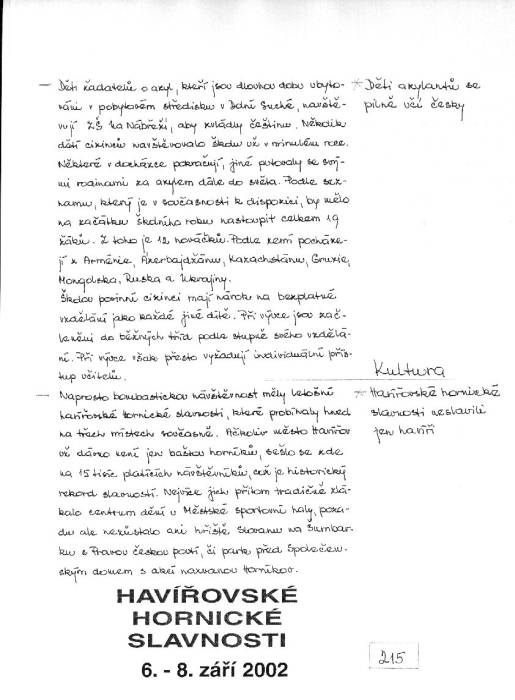 – Děti žadatelů o azyl, kteří jsou dlouhou dobu ubyto-
váni v pobytovém středisku v Dolní Suché, navště-
vují ZŠ Na Nábřeží, aby zvládly češtinu. Několik
dětí cizinců navštěvovalo školu už v minulém roce.
Některé v docházce pokračují, jiné putovaly se svý-
mi rodinami za azylem dále do světa. Podle sez-
namu, který je v současnosti k dispozici, by mělo
na začátku školního roku nastoupit celkem 19
žáků. Z toho je 12 nováčků. Podle zemí pocháze-
jí z Arménie, Azerbajdžánu, Kazachstánu, Gruzie,
Mongolska, Ruska a Ukrajiny.
Školou povinní cizinci mají nárok na bezplatné
vzdělání jako každé jiné dítě. Při výuce jsou zač-
leněni do běžných tříd podle stupně svého vzdělá-
ní. Při výuce však přesto vyžadují individuální přís-
tup učitelů.
* Děti azylantů se
pilně učí česky
Kultura
– Naprosto bombastickou návštěvnost měly letošní
havířovské Hornické slavnosti, které probíhaly hned
na třech místech současně. Ačkoliv město Havířov
už dávno není jen baštou horníků, sešlo se zde
na 15 tisíc platících návštěvníků, což je historický
rekord slavností. Nejvíce jich přitom tradičně zlá-
kalo centrum dění u Městské sportovní haly, poza-
du ale nezůstalo ani hřiště Slovanu na Šumbar-
ku s Pravou českou poutí, či park před Společen-
ským domem s akcí nazvanou Horníkov.
* Havířovské hornické
slavnosti neslavili
jen havíři
HAVÍŘOVSKÉ
HORNICKÉ
SLAVNOSTI
6. - 8. září 2002
215